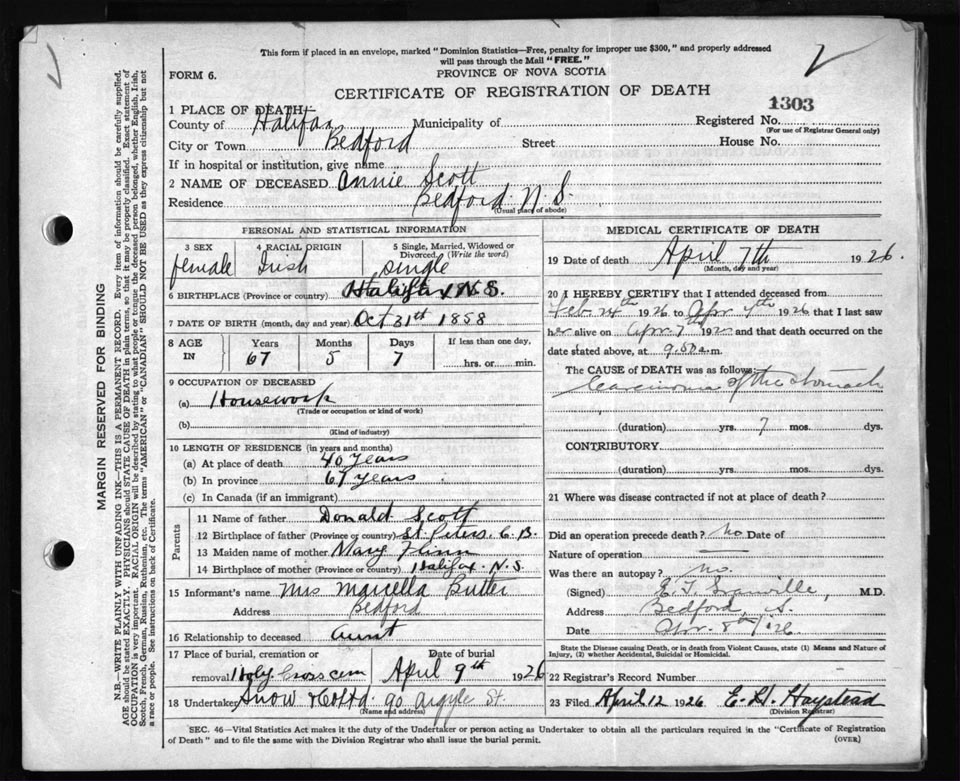 This form if placed in an envelope, marked "Dominion Statistics—Free, penalty for improper use $300," and properly addressed
will pass through the Mail "FREE."
FORM 6.
PROVINCE OF NOVA SCOTIA
CERTIFICATE OF REGISTRATION OF DEATH
1303
1 PLACE OF DEATH
County of Halifax Municipality of Registered No.
(For use of Registrar General only)
City or Town Bedford Street House No.
If in hospital or institution, give name
2 NAME OF DECEASED Annie Scott
Residence Bedford N.S.
(Usual place of abode)
PERSONAL AND STATISTICAL INFORMATION
3 SEX female
4 RACIAL ORIGIN Irish
5 Single, Married, Widowed or Divorced. (Write the word) single
6 BIRTHPLACE (Province or country) Halifax N.S.
7 DATE OF BIRTH (month, day and year) Oct 31st 1858
8 AGE IN Years 67 Months 5 Days 7 If less than one day, hrs. or min.
9 OCCUPATION OF DECEASED
(a) Housework
(Trade or occupation or kind of work)
(b)
(Kind of industry)
10 LENGTH OF RESIDENCE (in years and months)
(a) At place of death 40 years
(b) In province 67 years
(c) In Canada (if an immigrant)
Parents
11 Name of father Donald Scott
12 Birthplace of father (Province or country) St. Peters. C.B.
13 Maiden name of mother Mary Flinn
14 Birthplace of mother (Province or country) Halifax. N.S.
15 Informant's name Mrs Marcella Butler
Address Bedford
16 Relationship to deceased aunt
17 Place of burial, cremation or removal Holy Cross cem
Date of burial April 9th 1926
18 Undertaker Snow & Co Ltd 90 Argyle St.
(Name and address)
MEDICAL CERTIFICATE OF DEATH
19 Date of death April 7th 1926.
(Month, day and year)
20 I HEREBY CERTIFY that I attended deceased from
Feb 24th 1926 to Apr 7th 1926 that I last saw
her alive on Apr 7th 192 and that death occurred on
date stated above, at m.
The CAUSE of DEATH was as follows:
Carcinoma of the stomach
(duration) yrs. 7 mos. dys.
CONTRIBUTORY.
(duration) yrs. mos. dys.
21 Where was disease contracted if not at place of death?
Did an operation precede death? No Date of
Nature of operation
Was there an autopsy? no.
(Signed) M.D.
Address Bedford, N.S.
Date Apr. 8th/26
State the Disease causing Death, or in death from Violent Causes, state (1) Means and Nature of
Injury, (2) whether Accidental, Suicidal or Homicidal.
22 Registrar's Record Number
23 Filed April 12 1926 E. H. Haystead
(Division Registrar)
SEC. 46—Vital Statistics Act makes it the duty of the Undertaker or person acting as Undertaker to obtain all the particulars required in the "Certificate of Registration
of Death" and to file the same with the Division Registrar who shall issue the burial permit.
(OVER)
MARGIN RESERVED FOR BINDING
N.B.—WRITE PLAINLY WITH UNFADING INK—THIS IS A PERMANENT RECORD. Every item of information should be carefully supplied.
AGE should be stated EXACTLY. PHYSICIANS should STATE CAUSE OF DEATH in plain terms, so that it may be properly classified. Exact statement of
OCCUPATION is very important. RACIAL ORIGIN will be described by stating to what people or tongue the deceased person belonged, whether English, Irish,
Scotch, French, German, Russian, Ruthenian, etc. The terms "AMERICAN" or "CANADIAN" SHOULD NOT BE USED as they express citizenship but not
a race or people. See instructions on back of Certificate.